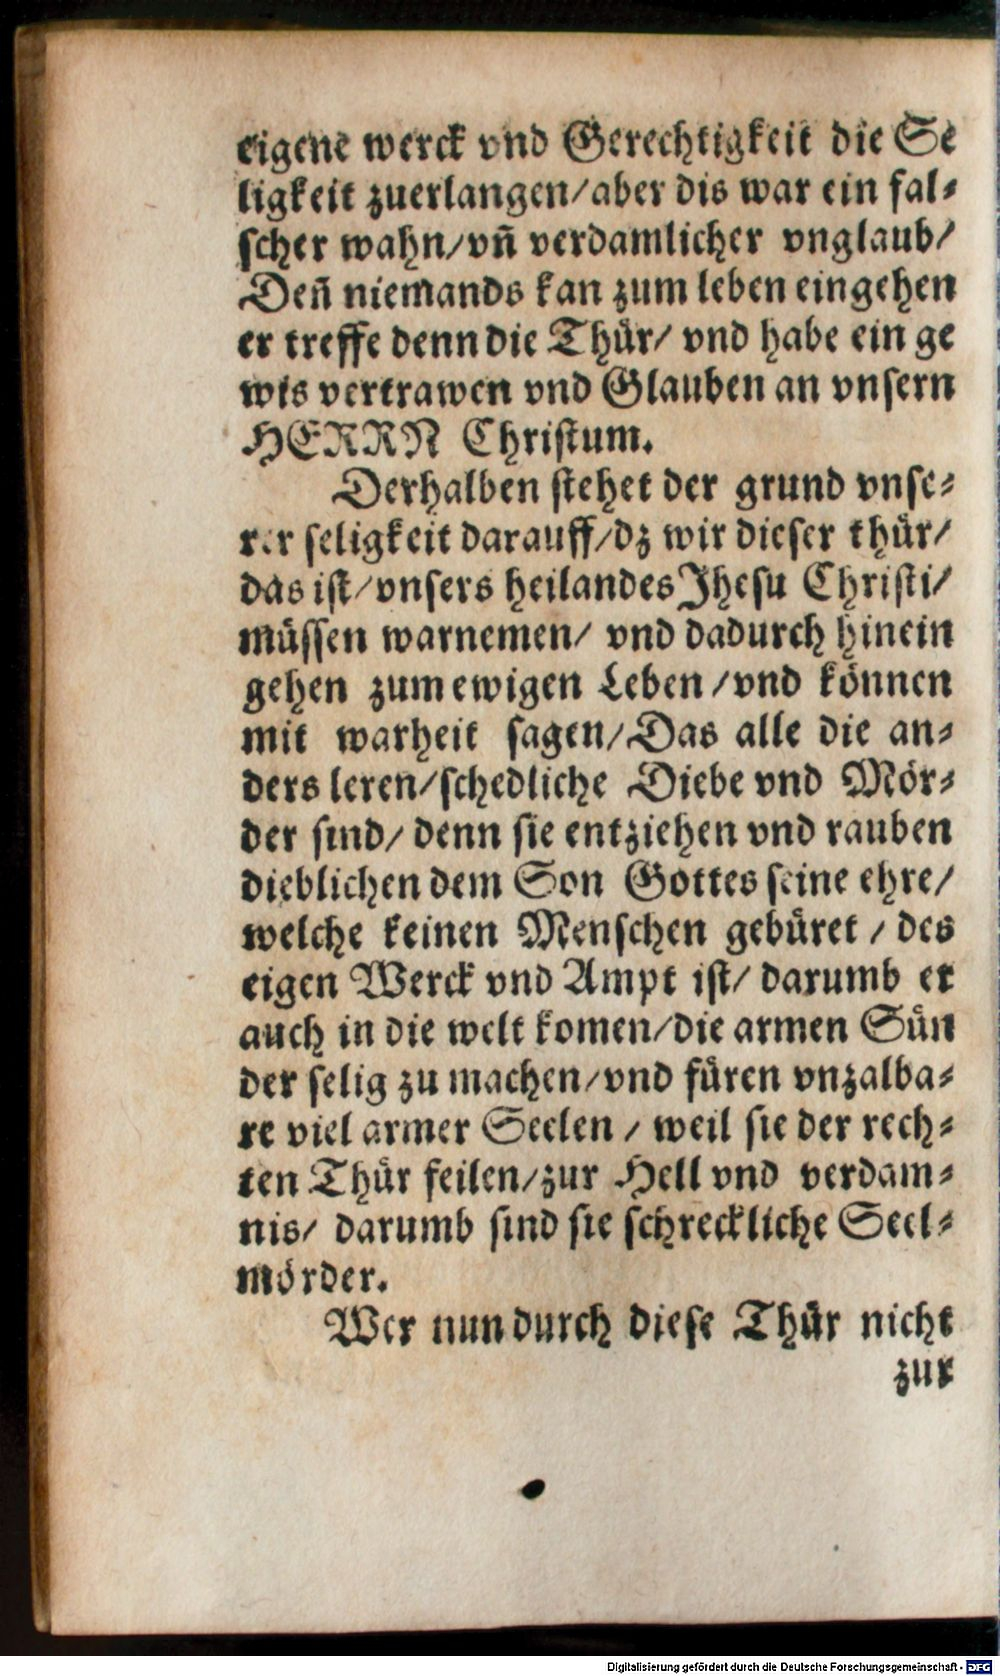 eigene werck vnd Gerechtigkeit die Se
ligkeit zuerlangen/aber dis war ein fal⸗
scher wahn/vñ verdamlicher vnglaub/
Deñ niemands kan zum leben eingehen
er treffe denn die Thür/ vnd habe ein ge
wis vertrawen vnd Glauben an vnsern
HERRN Christum.
Derhalben stehet der grund vnse⸗
rer seligkeit darauff/dz wir dieser thür/
das ist/vnsers heilandes Jhesu Christi/
müssen warnemen/ vnd dadurch hinein
gehen zum ewigen Leben /vnd können
mit warheit sagen/Das alle die an⸗
ders leren/schedliche Diebe vnd Mör⸗
der sind/ denn sie entziehen vnd rauben
dieblichen dem Son Gottes seine ehre/
welche keinen Menschen gebüret / des
eigen Werck vnd Ampt ist/ darumb er
auch in die welt komen/die armen Sün
der selig zu machen/vnd füren vnzalba⸗
re viel armer Seelen / weil sie der rech⸗
ten Thür feilen/zur Hell vnd verdam⸗
nis/ darumb sind sie schreckliche Seel⸗
mörder.
Wer nun durch diese Thür nicht
zur
Digitalisierung gefördert durch die Deutsche Forschungsgemeinschaft - DFG